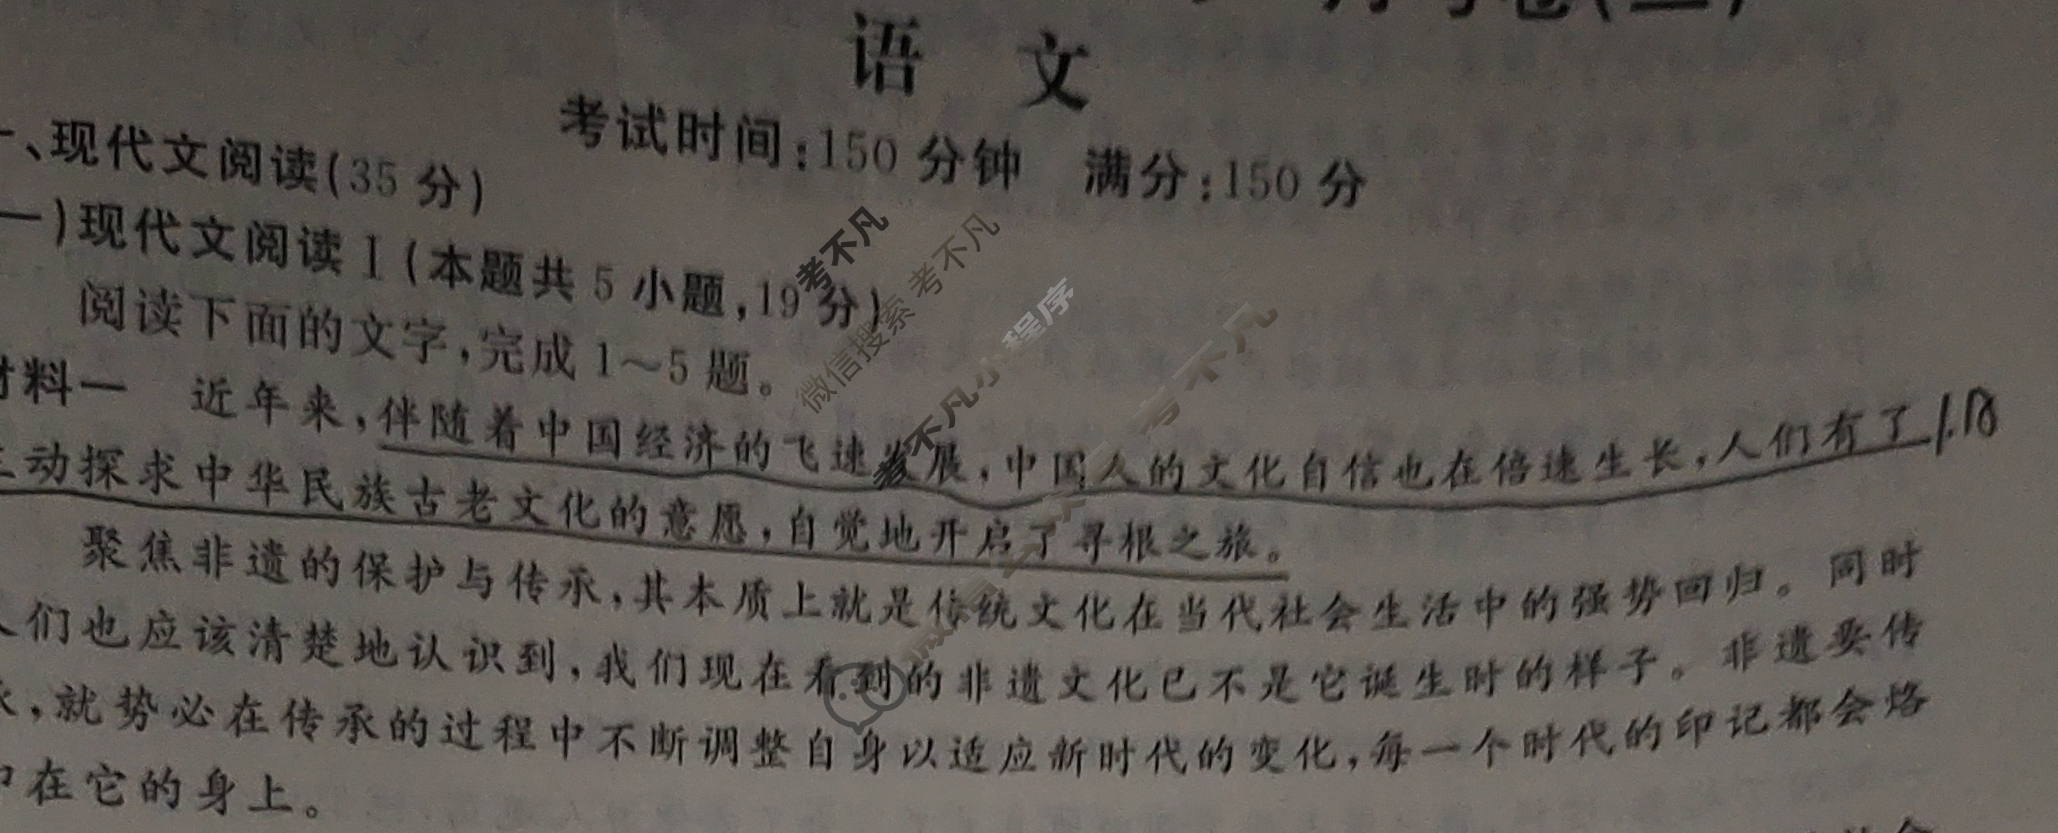 月考卷(二)
语 文
考试时间:150 分钟 满分:150 分
一、现代文阅读(35 分)
一)现代文阅读 I (本题共 5 小题,19 分)
阅读下面的文字,完成 1～5 题。
材料一 近年来,伴随着中国经济的飞速发展,中国人的文化自信也在倍速生长,人们有了
主动探求中华民族古老文化的意愿,自觉地开启了寻根之旅。
聚焦非遗的保护与传承,其本质上就是传统文化在当代社会生活中的强势回归。同时
人们也应该清楚地认识到,我们现在看到的非遗文化已不是它诞生时的样子。非遗要传
承,就势必在传承的过程中不断调整自身以适应新时代的变化,每一个时代的印记都会烙
印在它的身上。
考不凡
微信搜索 考不凡
考不凡小程序
考不凡